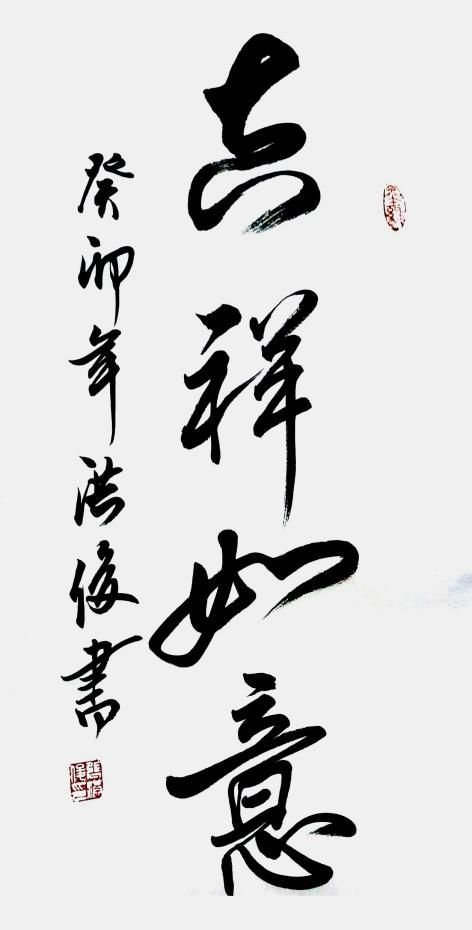 吉祥如意
癸卯年洪俊書